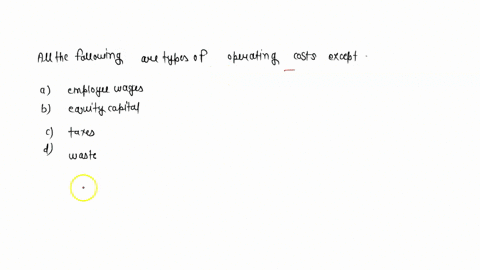 All the following are types of operating costs except.
a) employee wages
b) equity capital
c) taxes
d) waste